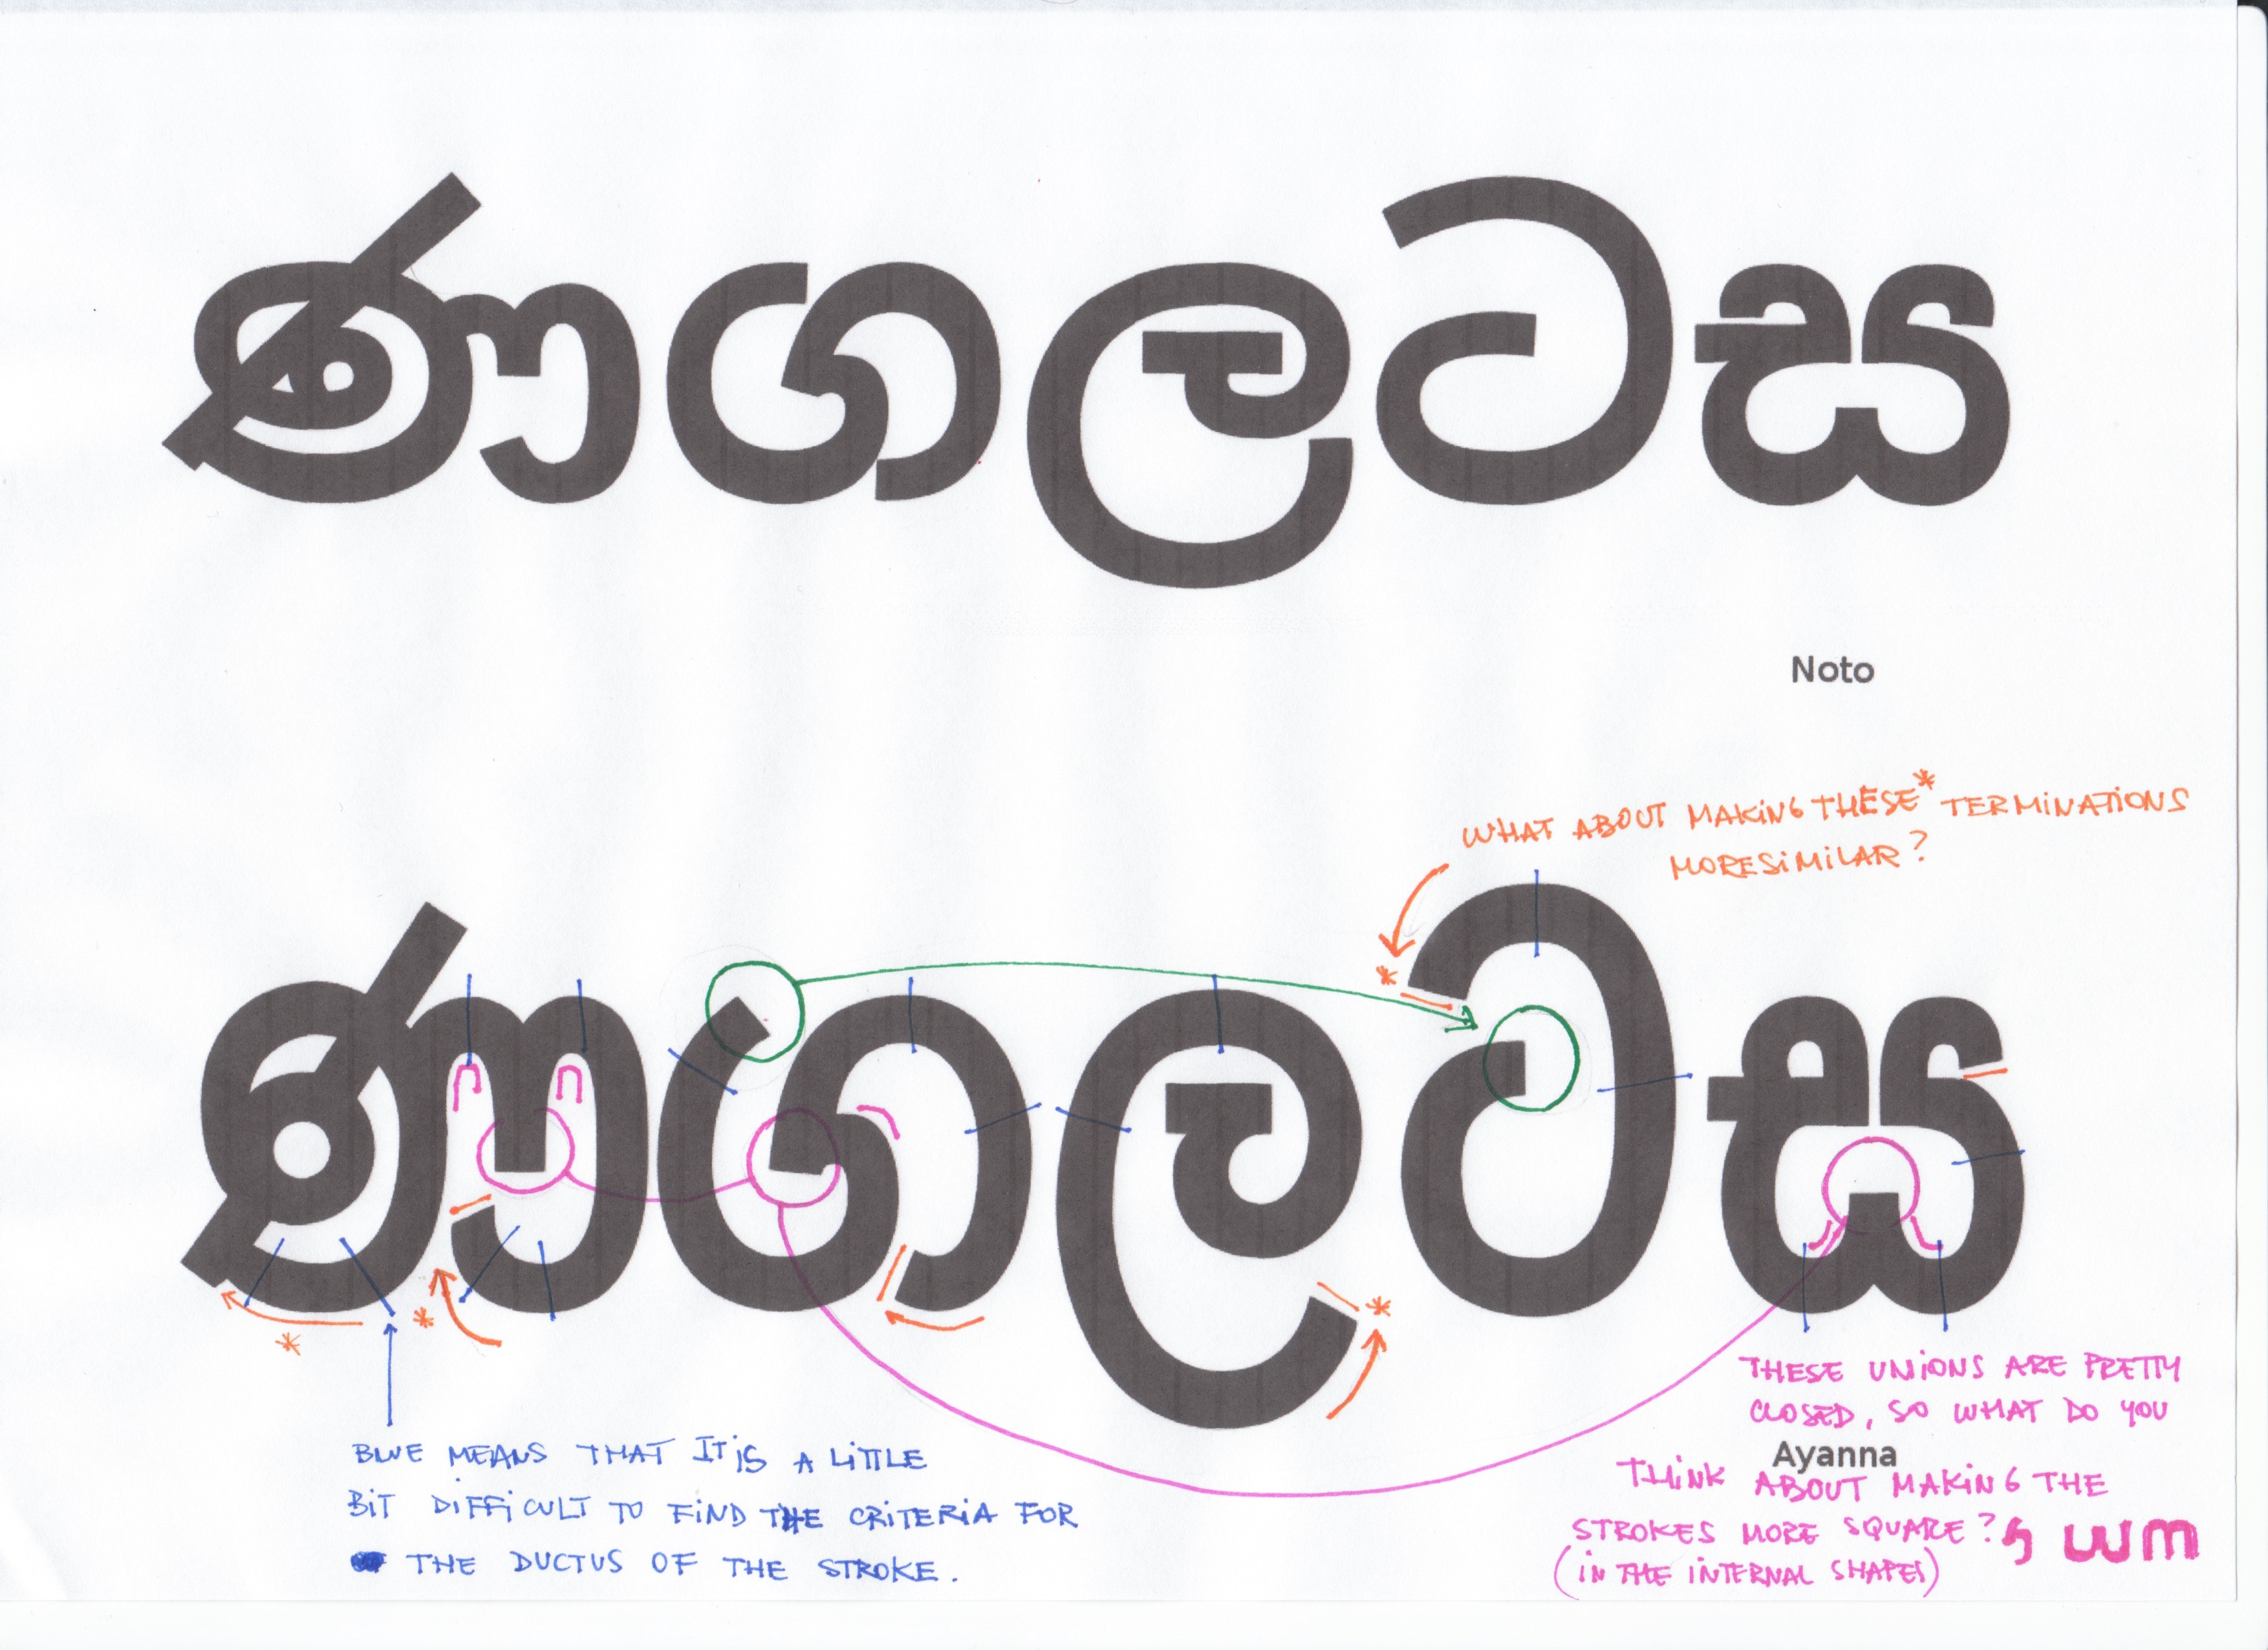 ණගලටස
Noto
WHAT ABOUT MAKING THESE* TERMINATIONS
MORE SIMILAR?
ණගලටස
BLUE MEANS THAT IT IS A LITTLE
BIT DIFFICULT TO FIND THE CRITERIA FOR
THE DUCTUS OF THE STROKE.
THESE UNIONS ARE PRETTY
CLOSED, SO WHAT DO YOU
Ayanna
THINK ABOUT MAKING THE
STROKES MORE SQUARE?
(IN THE INTERNAL SHAPES)